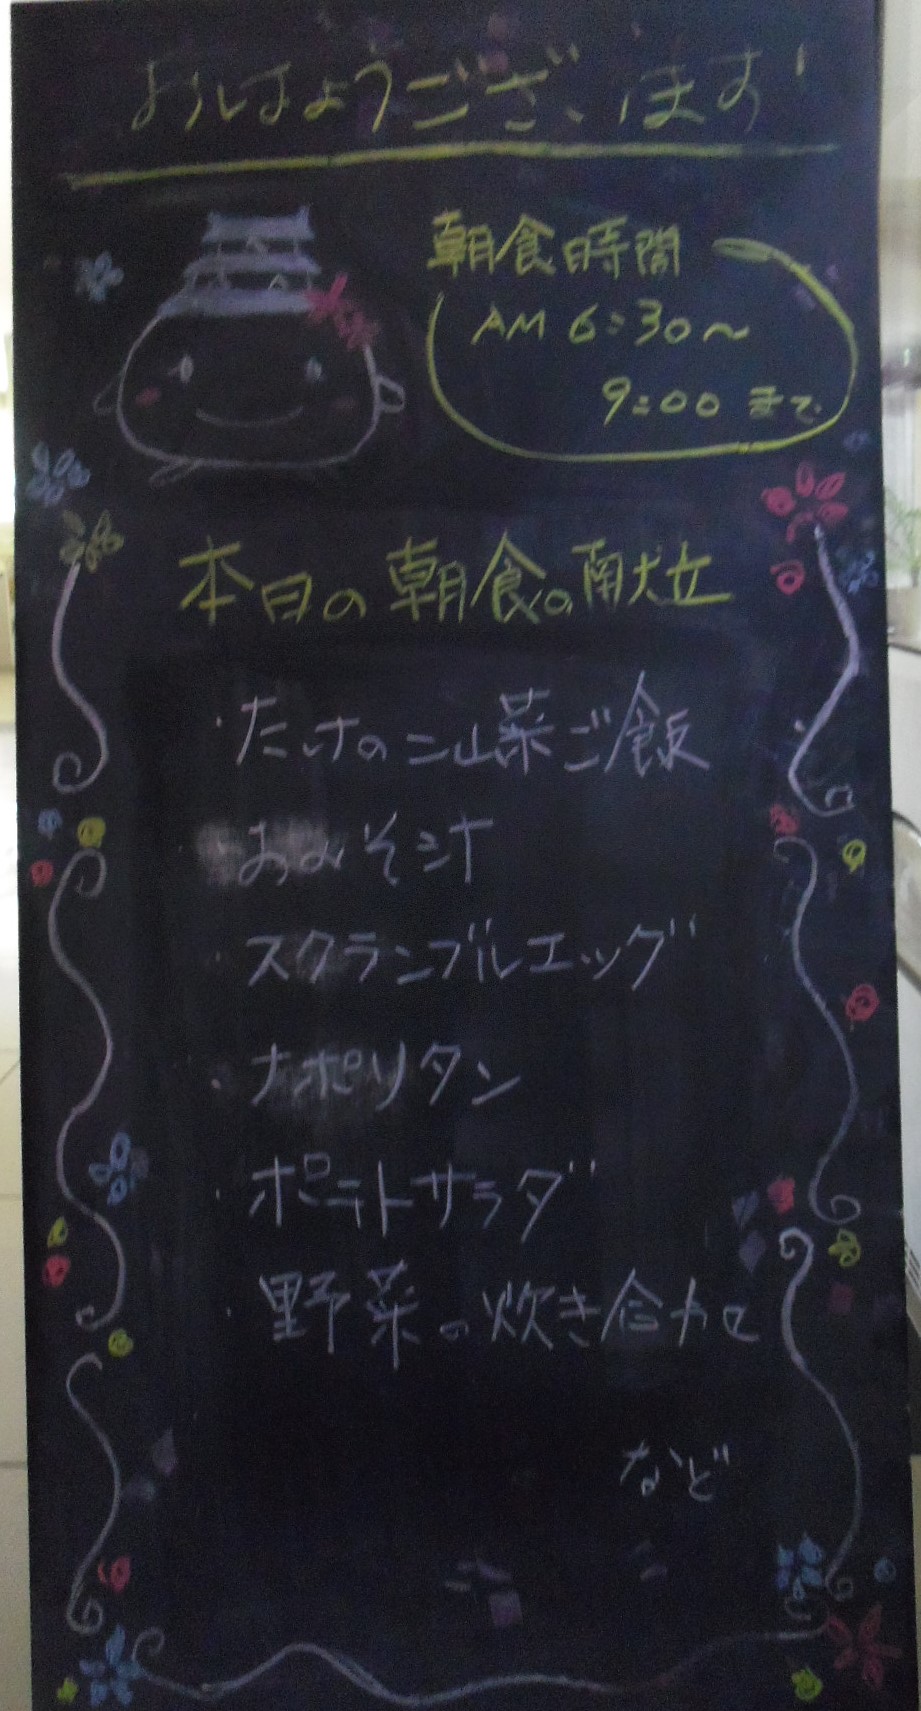 おはようございます!
朝食時間
AM 6:30～
9:00 まで
本日の朝食の献立
・たけのこ山菜ご飯
・おみそ汁
・スクランブルエッグ
・ナポリタン
・ポテトサラダ
・野菜の炊き合わせ
など